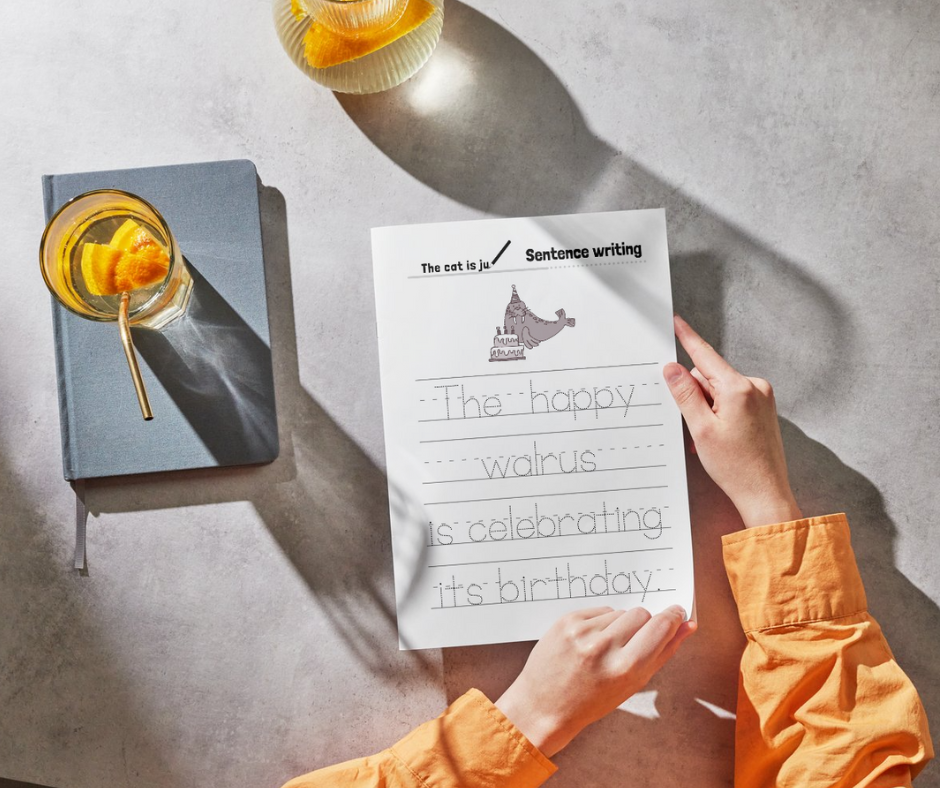 The cat is ju
Sentence writing
The happy
walrus
is celebrating
its birthday.